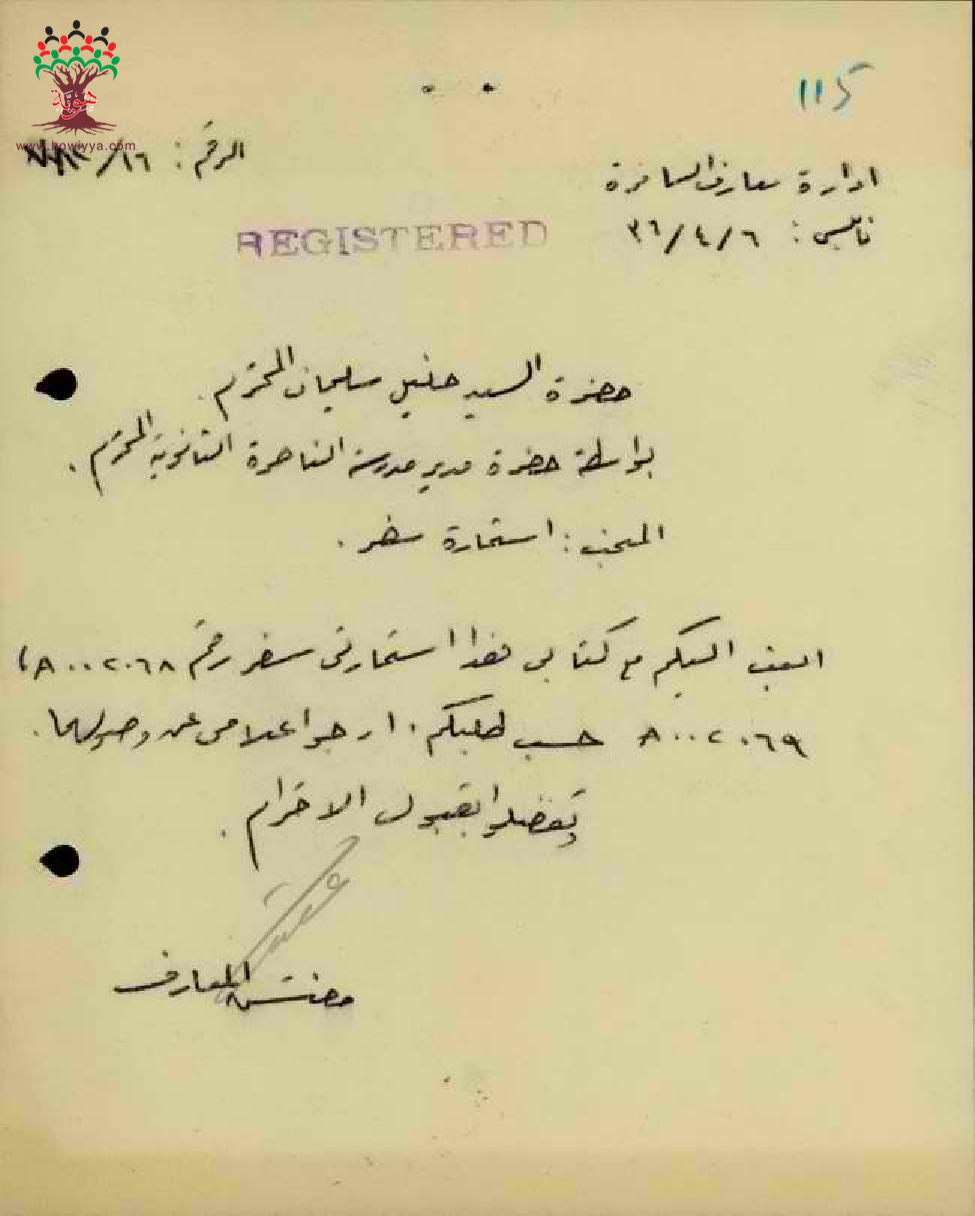 115
ادارة معارف السامرة
الرقم: /١٦
نابلس: ٣٦/٤/٦
REGISTERED
حضرة السيد خليل سليمان المحترم.
بواسطة حضرة مدير مدرسة الناصرة الثانوية المحترم.
المبحث: استمارة سفر.
ابعث اليكم مع كتابي هذا استمارتي سفر رقم A٠٠٢٠٦٨،
A٠٠٢٠٦٩ حسب طلبكم. ارجو اعلامي عن وصولهما.
وتفضلوا بقبول الاحترام.
مفتش المعارف
هوية
www.howiyya.com